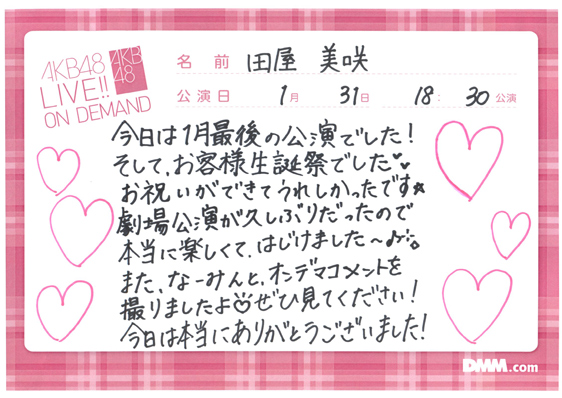 AKB48
LIVE!!
ON DEMAND
AKB
48
名前 田屋 美咲
公演日 1月 31日 18:30公演
今日は1月最後の公演でした!
そして、お客様生誕祭でした♥♥
お祝いができてうれしかったです★
劇場公演が久しぶりだったので
本当に楽しくて、はじけました〜♪
また、なーみんと、オンデマコメントを
撮りましたよ♡ぜひ見てください!
今日は本当にありがとうございました!
DMM.com